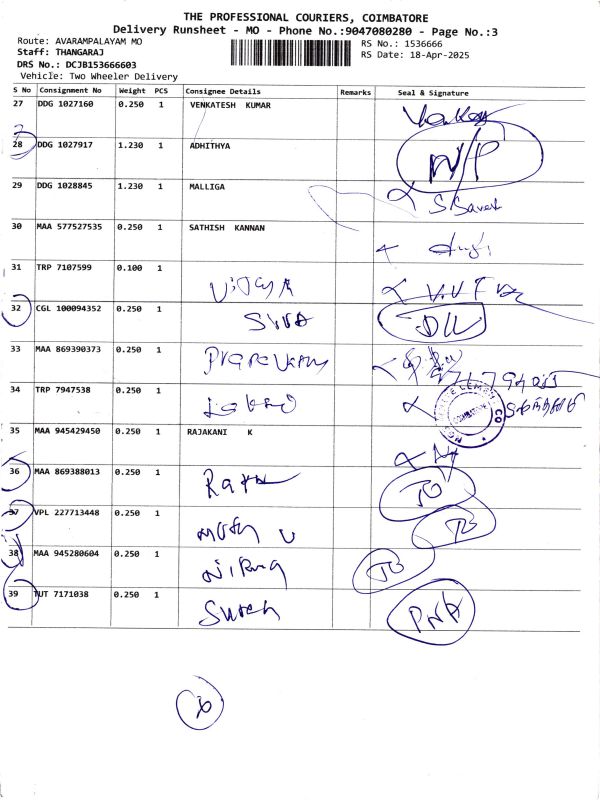 THE PROFESSIONAL COURIERS, COIMBATORE
Delivery Runsheet - MO - Phone No.:9047080280 - Page No.:3
Route: AVARAMPALAYAM MO
RS No.: 1536666
Staff: THANGARAJ
RS Date: 18-Apr-2025
DRS No.: DCJB153666603
Vehicle: Two Wheeler Delivery
S No Consignment No Weight PCS Consignee Details Remarks Seal & Signature
27 DDG 1027160 0.250 1 VENKATESH KUMAR
28 DDG 1027917 1.230 1 ADHITHYA N/P
29 DDG 1028845 1.230 1 MALLIGA
30 MAA 577527535 0.250 1 SATHISH KANNAN
31 TRP 7107599 0.100 1
32 CGL 100094352 0.250 1 SIVA DL
33 MAA 869390373 0.250 1
34 TRP 7947538 0.250 1
35 MAA 945429450 0.250 1 RAJAKANI K
36 MAA 869388013 0.250 1 TO
37 VPL 227713448 0.250 1 TO
38 MAA 945280604 0.250 1 TO
39 TUT 7171038 0.250 1 Suresh PNA